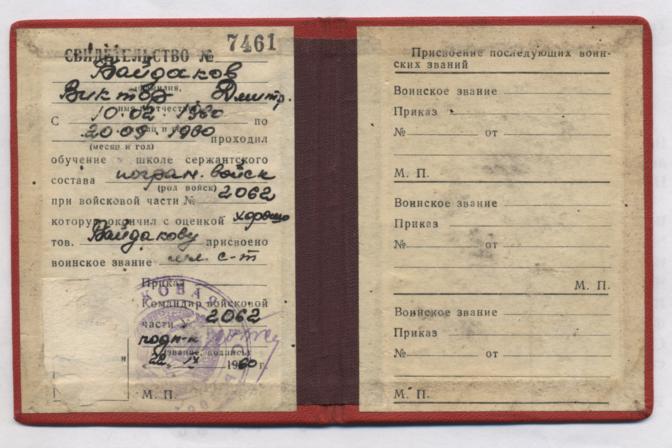 СВИДЕТЕЛЬСТВО № 7461
Вайдаков
Виктор Дмитр.
С 10.02.1960 по
20.09.1960 проходил
(месяц и год)
обучение в школе сержантского
состава погран. войск
(род войск)
при войсковой части № 2062
которую окончил с оценкой хорошо
тов. Вайдакову присвоено
воинское звание мл. с-т
Приказ
Командир войсковой
части № 2062
подп-к
(звание, подпись)
22. IX 1960 г.
М. П.
Присвоение последующих воин-
ских званий
Воинское звание
Приказ
№ от
М. П.
Воинское звание
Приказ
№ от
М. П.
Воинское звание
Приказ
№ от
М. П.